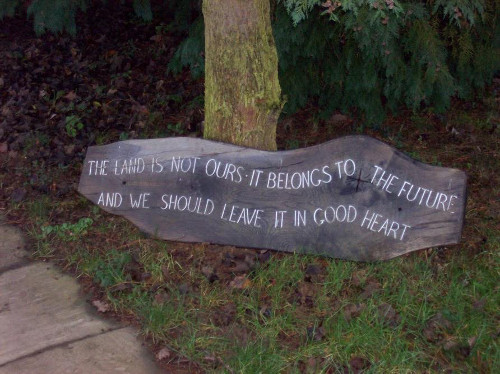 THE LAND IS NOT OURS · IT BELONGS TO THE FUTURE
AND WE SHOULD LEAVE IT IN GOOD HEART